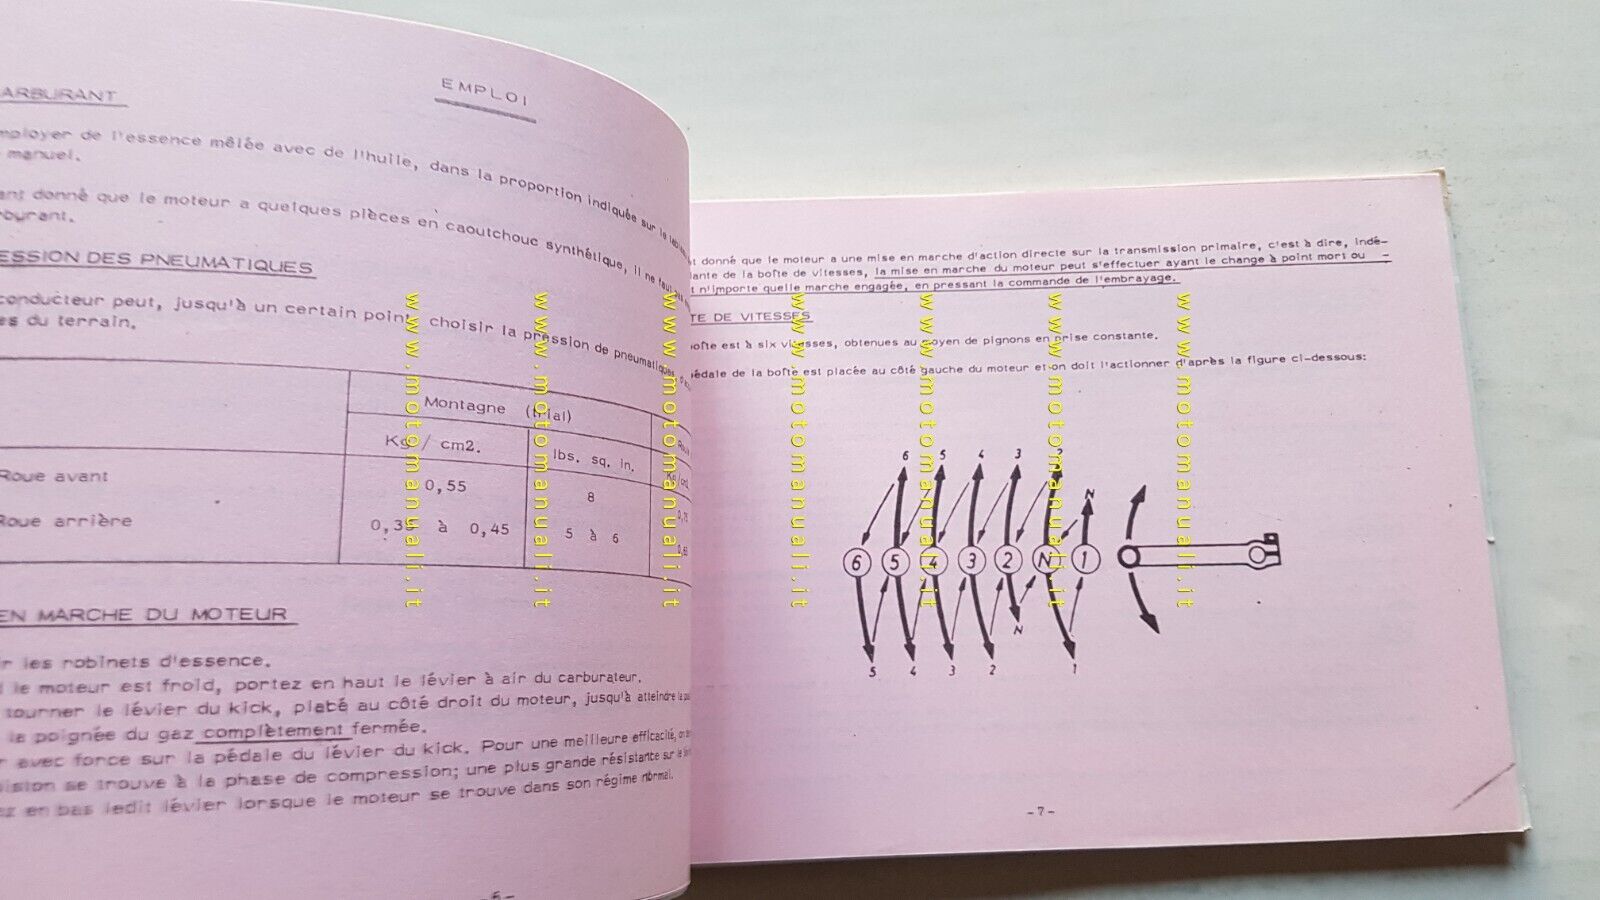 EMPLOI
ARBURANT
mployer de l'essence mêlée avec de l'huile, dans la proportion indiquée sur le
manuel.
ant donné que le moteur a quelques pièces en caoutchouc synthétique, il ne faut pas
burant.
ESSION DES PNEUMATIQUES
conducteur peut, jusqu'à un certain point, choisir la pression de pneumatiques
es du terrain.
Montagne (trial)
Kg / cm2.
lbs. sq. in.
Roue avant
0,55
8
0,75
Roue arrière
0,35 à 0,45
5 à 6
0,60
EN MARCHE DU MOTEUR
ir les robinets d'essence.
le moteur est froid, portez en haut le lévier à air du carburateur.
tourner le lévier du kick, placé au côté droit du moteur, jusqu'à atteindre la
la poignée du gaz complètement fermée.
r avec force sur la pédale du lévier du kick. Pour une meilleure efficacité, on
ision se trouve à la phase de compression; une plus grande résistante sur le
ez en bas ledit lévier lorsque le moteur se trouve dans son régime normal.
-6-
t donné que le moteur a une mise en marche d'action directe sur la transmission primaire, c'est à dire, indé-
ante de la boîte de vitesses, la mise en marche du moteur peut s'effectuer ayant le change à point mort ou -
t n'importe quelle marche engagée, en pressant la commande de l'embrayage.
TE DE VITESSES
oîte est à six vitesses, obtenues au moyen de pignons en prise constante.
édale de la boîte est placée au côté gauche du moteur et on doit l'actionner d'après la figure ci-dessous:
6 5 4 3 2
N
6 5 4 3 2 N 1
N
5 4 3 2 1
-7-
www.motomanuali.it
www.motomanuali.it
www.motomanuali.it
www.motomanuali.it
www.motomanuali.it
www.motomanuali.it
www.motomanuali.it